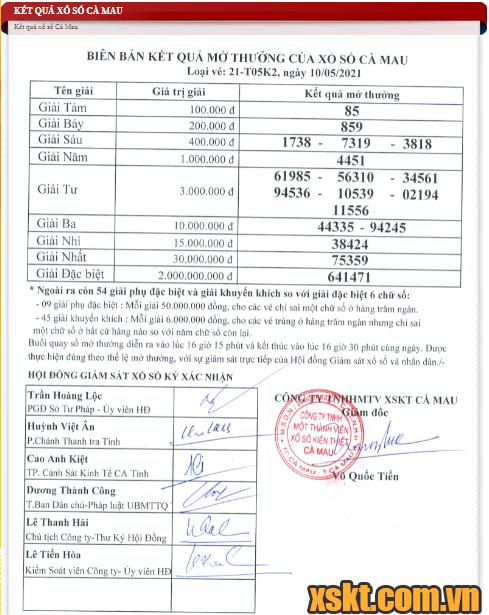 KẾT QUẢ XỔ SỐ CÀ MAU
Kết quả xổ số Cà Mau
BIÊN BẢN KẾT QUẢ MỞ THƯỞNG CỦA XỔ SỐ CÀ MAU
Loại vé: 21-T05K2, ngày 10/05/2021
Tên giải Giá trị giải Kết quả mở thưởng
Giải Tám 100.000 đ 85
Giải Bảy 200.000 đ 859
Giải Sáu 400.000 đ 1738 - 7319 - 3818
Giải Năm 1.000.000 đ 4451
Giải Tư 3.000.000 đ 61985 - 56310 - 34561
94536 - 10539 - 02194
11556
Giải Ba 10.000.000 đ 44335 - 94245
Giải Nhì 15.000.000 đ 38424
Giải Nhất 30.000.000 đ 75359
Giải Đặc biệt 2.000.000.000 đ 641471
* Ngoài ra còn 54 giải phụ đặc biệt và giải khuyến khích so với giải đặc biệt 6 chữ số:
- 09 giải phụ đặc biệt : Mỗi giải 50.000.000 đồng, cho các vé chỉ sai một chữ số ở hàng trăm ngàn.
- 45 giải khuyến khích : Mỗi giải 6.000.000 đồng, cho các vé trúng ở hàng trăm ngàn nhưng chỉ sai
một chữ số ở bất cứ hàng nào so với năm chữ số còn lại.
Buổi quay số mở thưởng diễn ra vào lúc 16 giờ 15 phút và kết thúc vào lúc 16 giờ 30 phút cùng ngày. Được
thực hiện đúng theo thể lệ mở thưởng, với sự giám sát trực tiếp của Hội đồng Giám sát xổ số và nhân dân./-
HỘI ĐỒNG GIÁM SÁT XỔ SỐ KÝ XÁC NHẬN
Trần Hoàng Lộc
PGĐ Sở Tư Pháp - Ủy viên HĐ
Huỳnh Việt Ân
P.Chánh Thanh tra Tỉnh
Cao Anh Kiệt
TP. Cảnh Sát Kinh Tế CA Tỉnh
Dương Thành Công
T.Ban Dân chủ-Pháp luật UBMTTQ
Lê Thanh Hải
Chủ tịch Công ty-Thư Ký Hội Đồng
Lê Tiến Hòa
Kiểm Soát viên Công ty- Ủy viên HĐ
CÔNG TY TNHHMTV XSKT CÀ MAU
Giám đốc
CÔNG TY TNHH
MỘT THÀNH VIÊN
XỔ SỐ KIẾN THIẾT
CÀ MAU
TP. CÀ MAU - T. CÀ MAU
Võ Quốc Tiến
xskt.com.vn